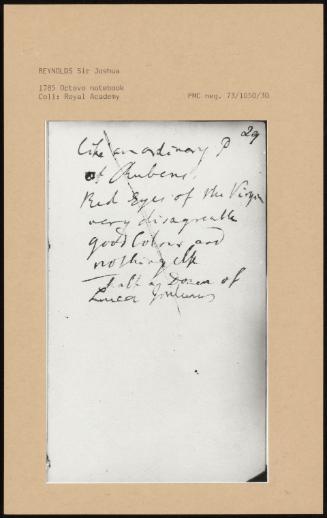 REYNOLDS Sir Joshua
1785 Octavo notebook
Coll: Royal Academy
PMC neg. 73/1050/30
29
like an ordinary P
of Rubens.
Red Eyes of the Virgin
very disagreable
good Colour and
nothing else
half a Dozen of
Luca